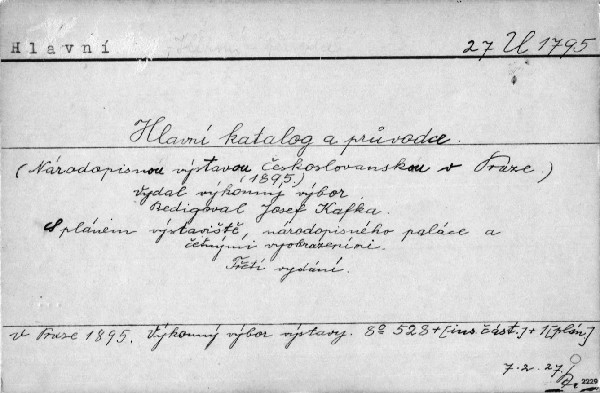 Hlavní
27 U 1795
Hlavní katalog a průvodce.
(Národopisnou výstavou československou v Praze)
(1895.)
Vydal výkonný výbor.
Redigoval Josef Kafka.
S plánem výstaviště, národopisného paláce a
četnými vyobrazeními.
Třetí vydání.
v Praze 1895. Výkonný výbor výstavy. 8º 528+[ins část.]+1[plán]
7.2.27.
2229